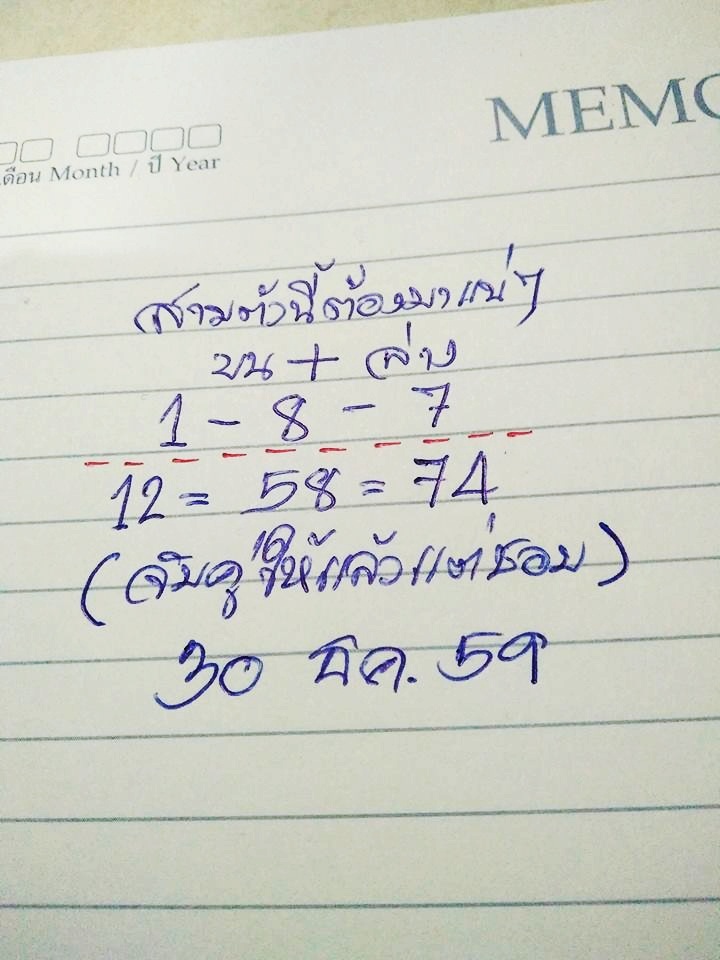 MEMO
เดือน Month / ปี Year
สามตัวนี้ต้องมาแน่ๆ
บน + ล่าง
1 - 8 - 7
12 = 58 = 74
(จับคู่ให้แล้วแต่ชอบ)
30 ธค. 59